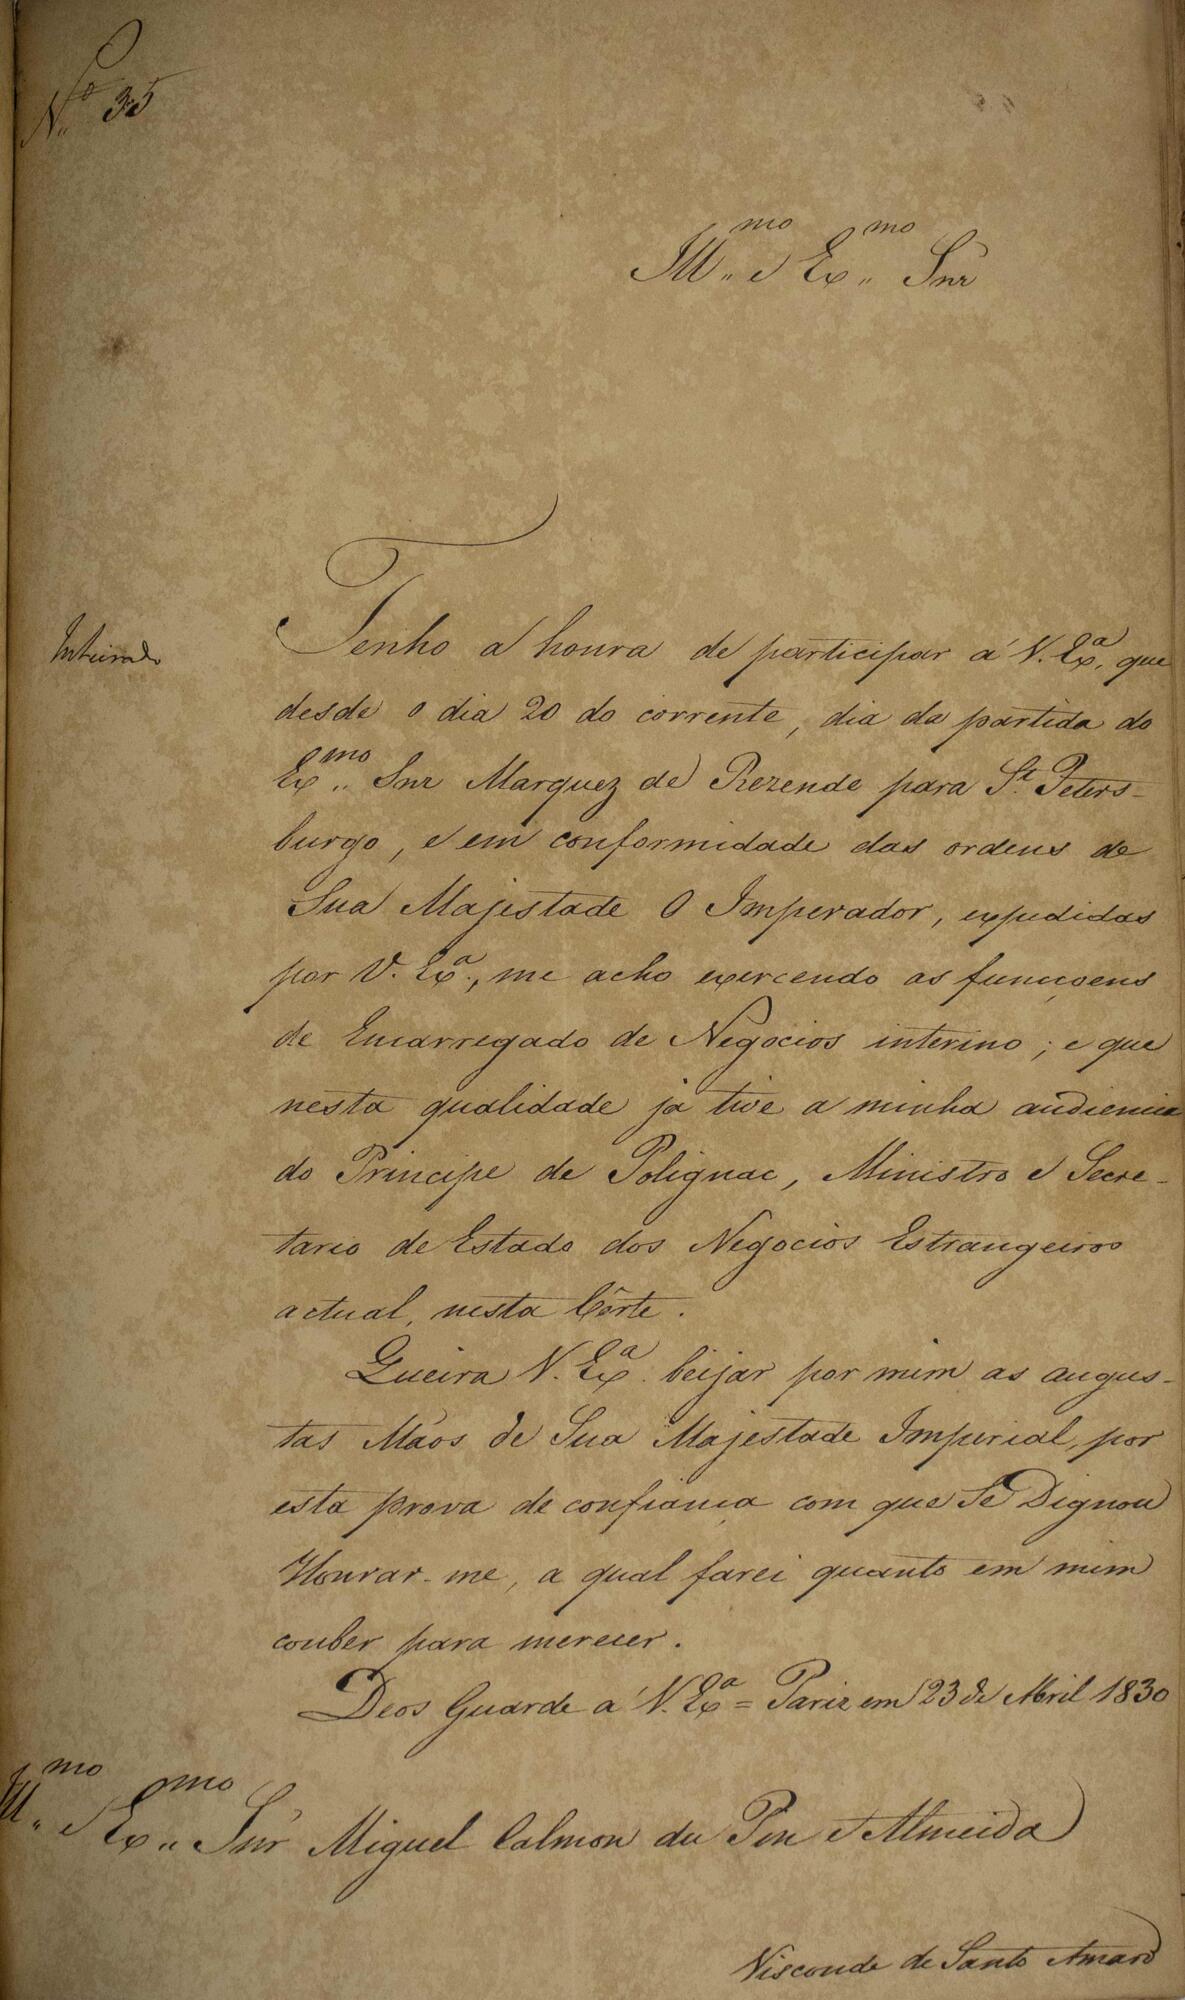 N.º 35
Ill.mo e Ex.mo Snr
Inteirado
Tenho a honra de participar a V. Ex.ª, que
desde o dia 20 do corrente, dia da partida do
Ex.mo Snr Marquez de Rezende para S.t Peters-
burgo, e em conformidade das ordens de
Sua Majestade O Imperador, expedidas
por V. Ex.ª, me acho exercendo as funcçoens
de Encarregado de Negocios interino; e que
nesta qualidade já tive a minha audiencia
do Principe de Polignac, Ministro e Secre-
tario de Estado dos Negocios Estrangeiros
actual, nesta Côrte.
Queira V. Ex.ª beijar por mim as augus-
tas Mãos de Sua Majestade Imperial, por
esta prova de confiança com que Se Dignou
Honrar-me, a qual farei quanto em mim
couber para merecer.
Deos Guarde a V. Ex.ª = Pariz em 23 de Abril 1830
Ill.mo e Ex.mo Snr Miguel Calmon du Pin e Almeida
Visconde de Santo Amaro